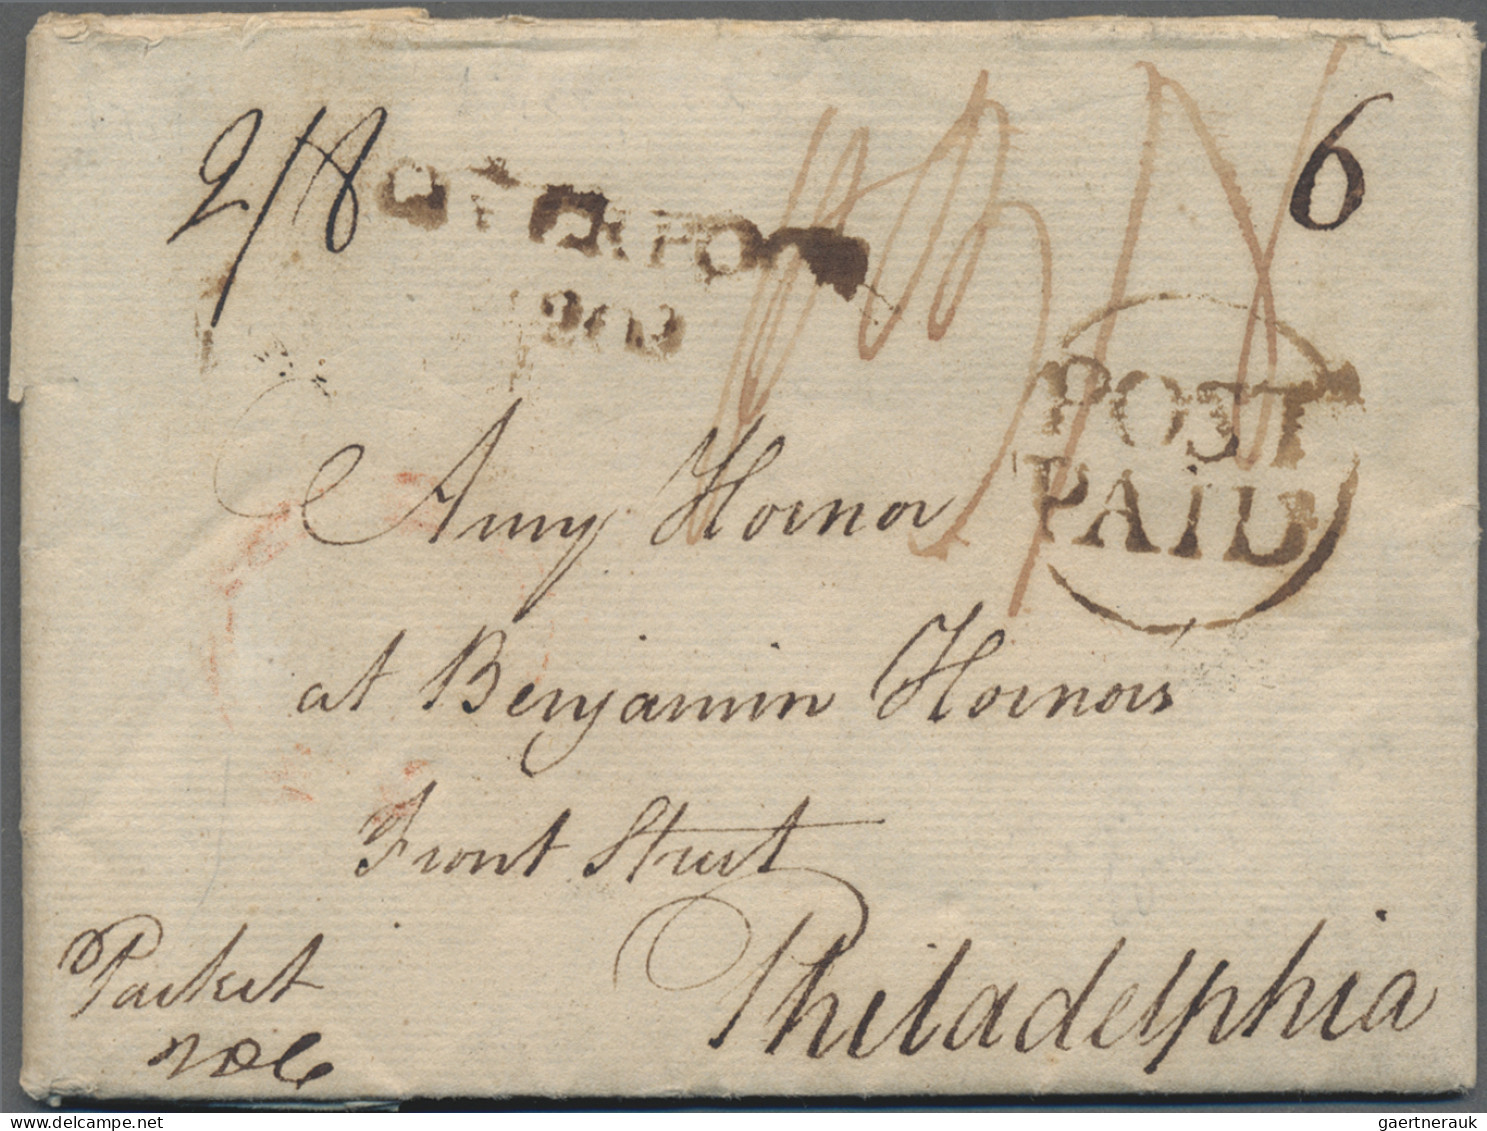 2/8
6
POST
PAID
Amy Hornor
at Benjamin Hornors
Front Street
Philadelphia
Packet
gaertnerauk